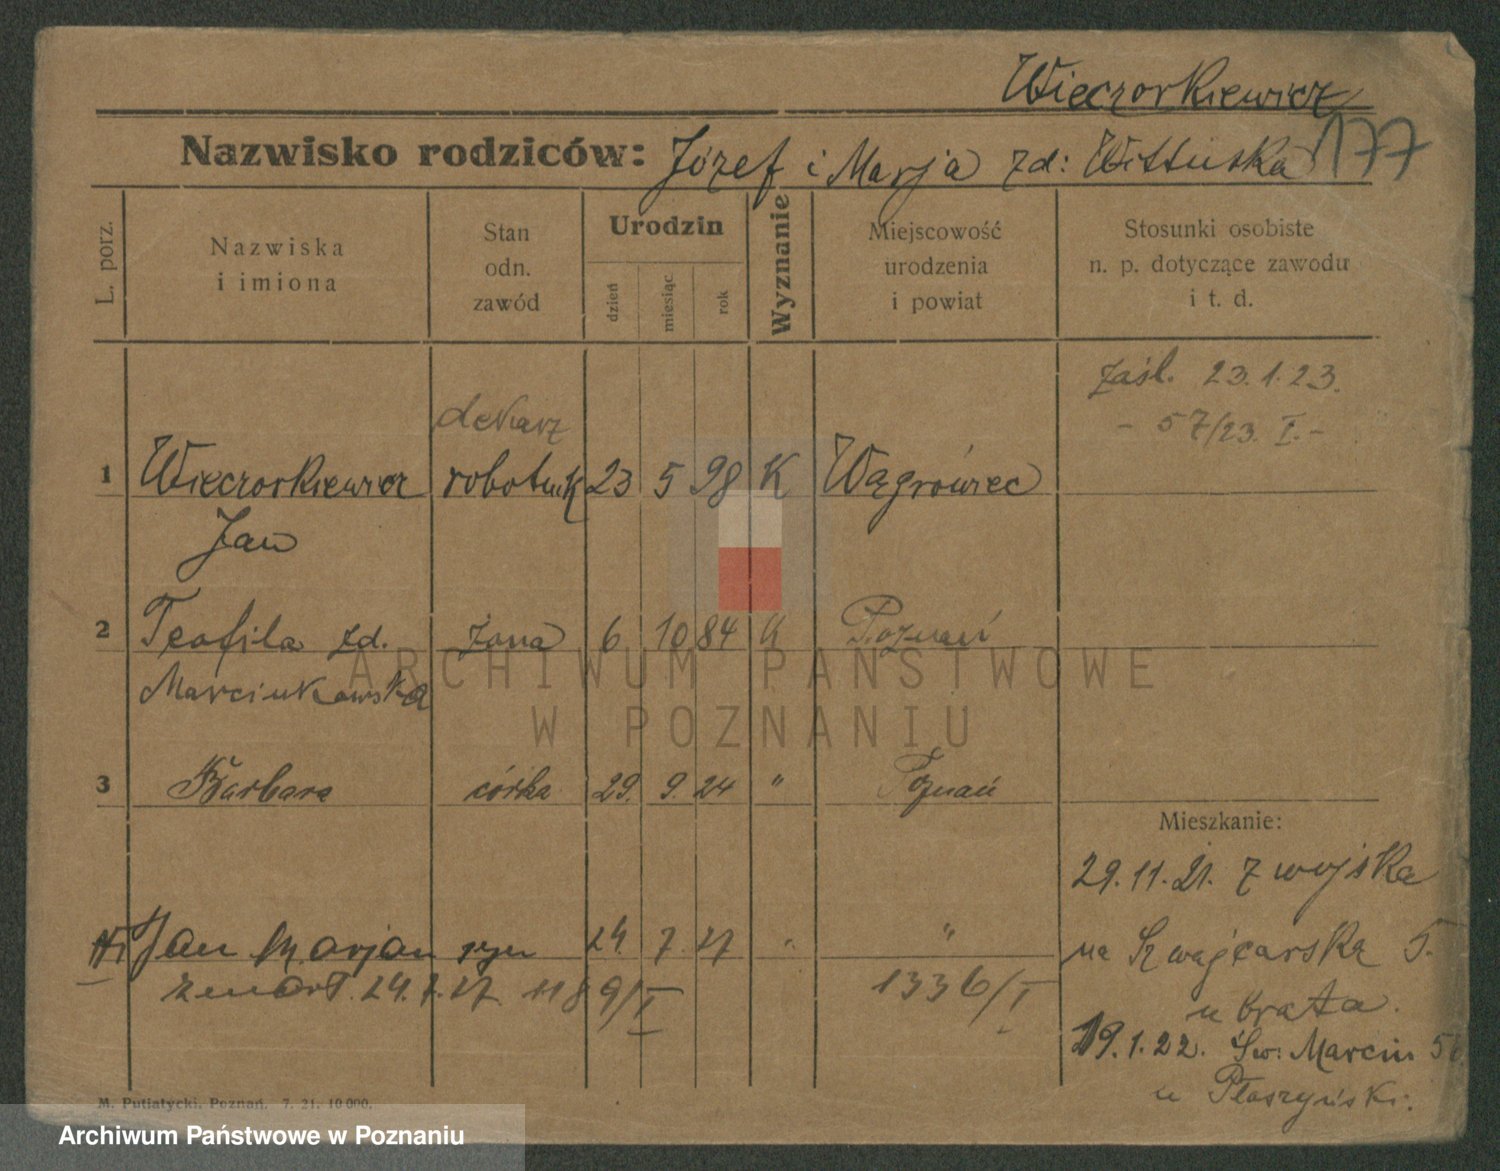 Wieczorkiewicz
Nazwisko rodziców: Józef i Marja zd: Wittuska 177
L. porz.
Nazwiska
i imiona
Stan
odn.
zawód
Urodzin
dzień
miesiąc
rok
Wyznanie
Miejscowość
urodzenia
i powiat
Stosunki osobiste
n. p. dotyczące zawodu
i t. d.
zaśl. 23.1.23.
- 57/23. I. -
dekarz
1 Wieczorkiewicz robotnik 23 5 98 K Wągrówiec
Jan
2 Teofila zd. żona 6 10 84 K Poznań
Marcinkowska
3 Barbara córka 29. 9. 24 " Poznań
Mieszkanie:
29.11.21. z wojska
Jan Marjan syn 24. 7. 27 " "
na Szwajcarską 5.
zmarł. 24.7.27 1189/I 1336/I
u brata.
19.1.22. Św: Marcin
u Płaszyński:
M. Putiatycki, Poznań. 7. 21. 10 000.
ARCHIWUM PAŃSTWOWE
W POZNANIU
Archiwum Państwowe w Poznaniu